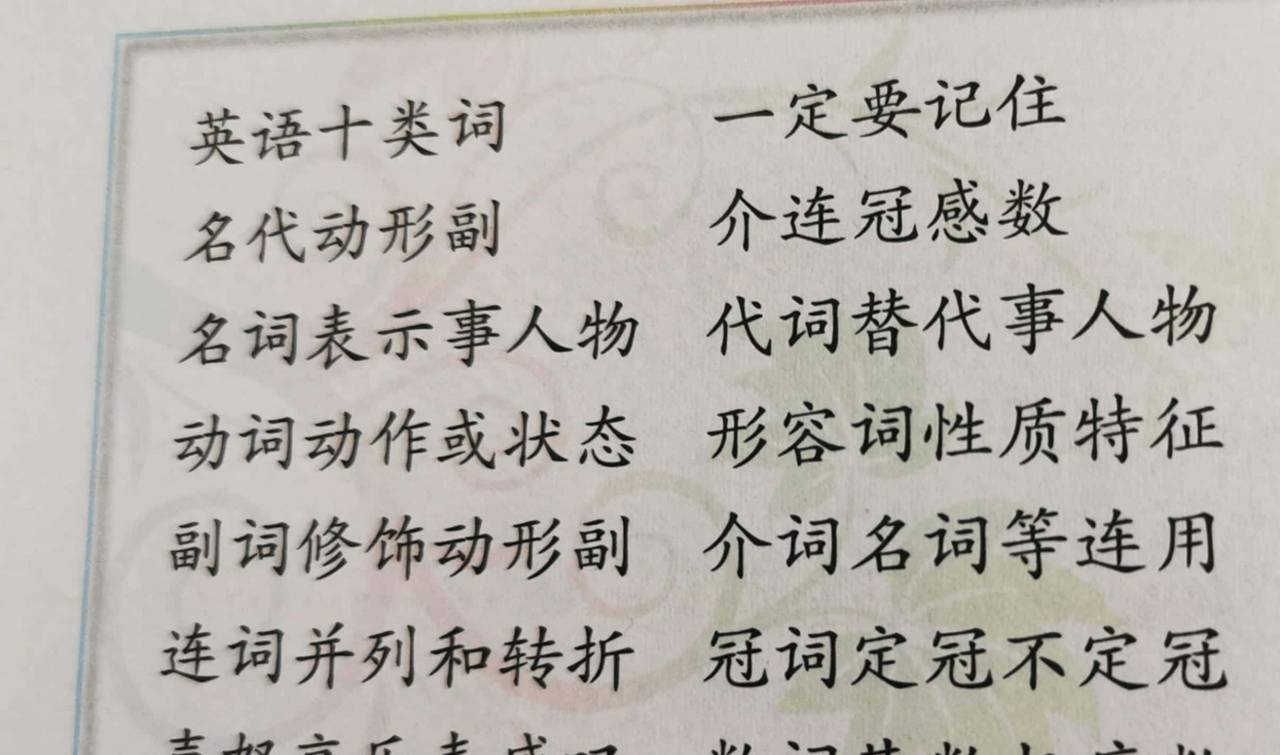 英语十类词 一定要记住
名代动形副 介连冠感数
名词表示事人物 代词替代事人物
动词动作或状态 形容词性质特征
副词修饰动形副 介词名词等连用
连词并列和转折 冠词定冠不定冠